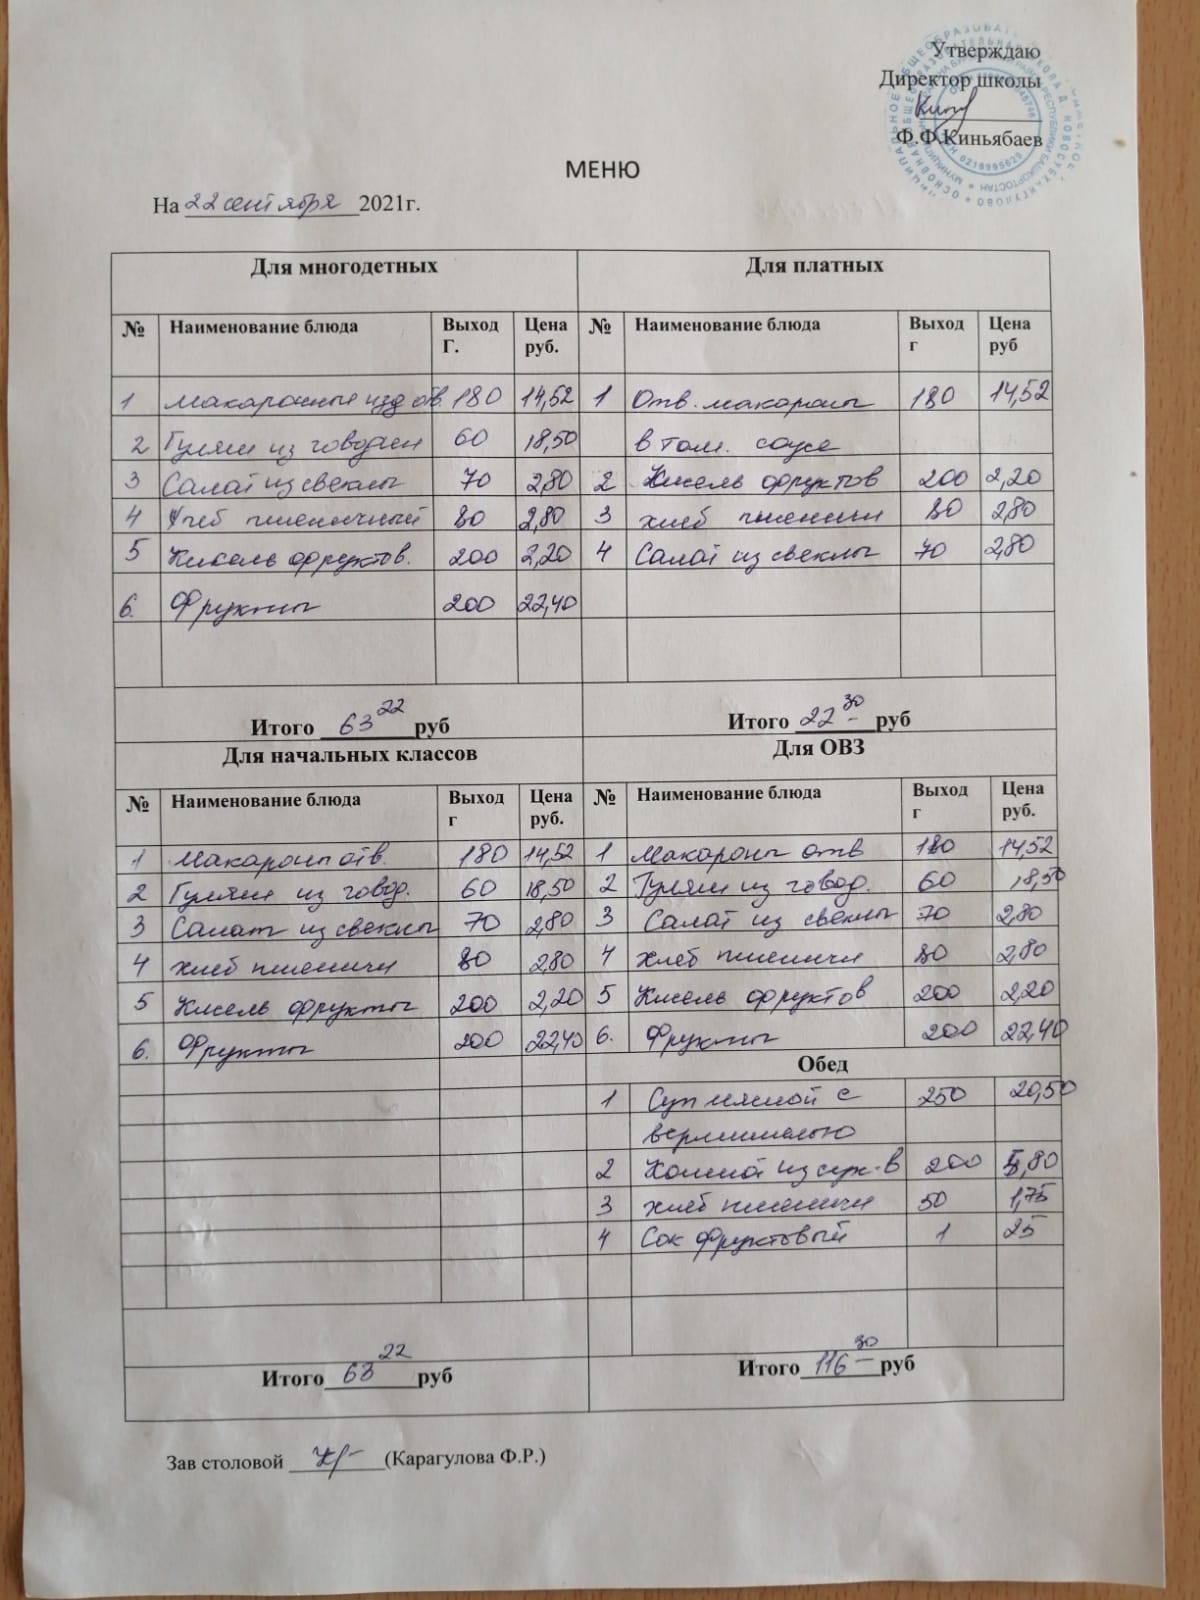 Утверждаю
Директор школы
Ф.Ф.Киньябаев
МЕНЮ
На 22 сентября 2021г.
Для многодетных Для платных
№ Наименование блюда Выход Г. Цена руб. № Наименование блюда Выход г Цена руб
1 Макаронные изд отв. 180 14,52 1 Отв. макароны 180 14,52
2 Гуляш из говядин 60 18,50 в том. соусе
3 Салат из свеклы 70 2,80 2 Кисель фруктов 200 2,20
4 Хлеб пшеничный 80 2,80 3 хлеб пшеничн 80 2,80
5 Кисель фруктов. 200 2,20 4 Салат из свеклы 70 2,80
6. Фрукты 200 22,40
Итого 63 22 руб Итого 22 30 руб
Для начальных классов Для ОВЗ
№ Наименование блюда Выход г Цена руб. № Наименование блюда Выход г Цена руб.
1 Макароны отв. 180 14,52 1 Макароны отв 180 14,52
2 Гуляш из говяд. 60 18,50 2 Гуляш из говяд. 60 18,50
3 Салат из свеклы 70 2,80 3 Салат из свеклы 70 2,80
4 хлеб пшеничн 80 2,80 4 хлеб пшеничн 80 2,80
5 Кисель фрукты 200 2,20 5 Кисель фруктов 200 2,20
6. Фрукты 200 22,40 6. Фрукты 200 22,40
Обед
1 Суп мясной с 250 20,50
вермишелью
2 Компот из сух-в 200 5,80
3 хлеб пшеничн 50 1,75
4 Сок фруктовый 1 25
Итого 63 22 руб Итого 116 30 руб
Зав столовой (Карагулова Ф.Р.)